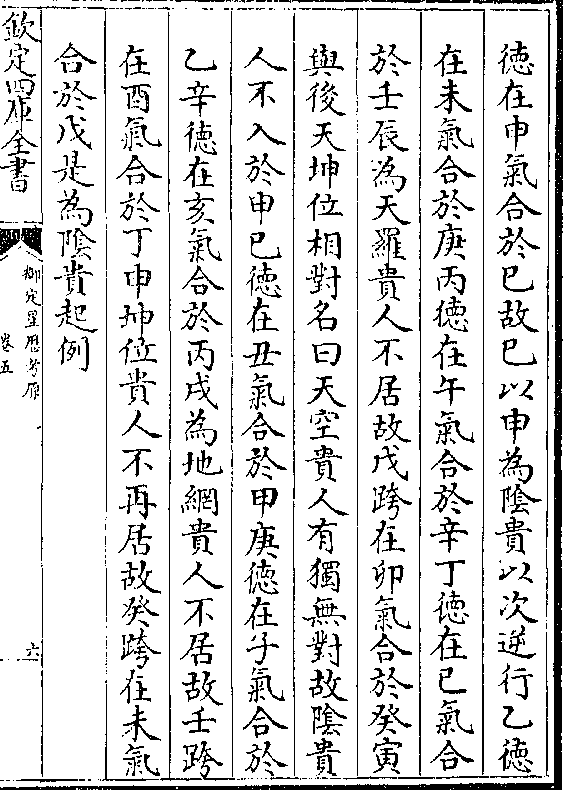 德在申氣合於巳故巳以申為陰貴以次逆行乙德
在未氣合於庚丙德在午氣合於辛丁德在巳氣合
於壬辰為天羅貴人不居故戊跨在卯氣合於癸寅
與後天坤位相對名曰天空貴人有獨無對故陰貴
人不入於申巳德在丑氣合於甲庚德在子氣合於
乙辛德在亥氣合於丙戌為地網貴人不居故壬跨
在酉氣合於丁申坤位貴人不再居故癸跨在未氣
合於戊是為陰貴起例
欽定四庫全書
御定星歷考原
卷五
六